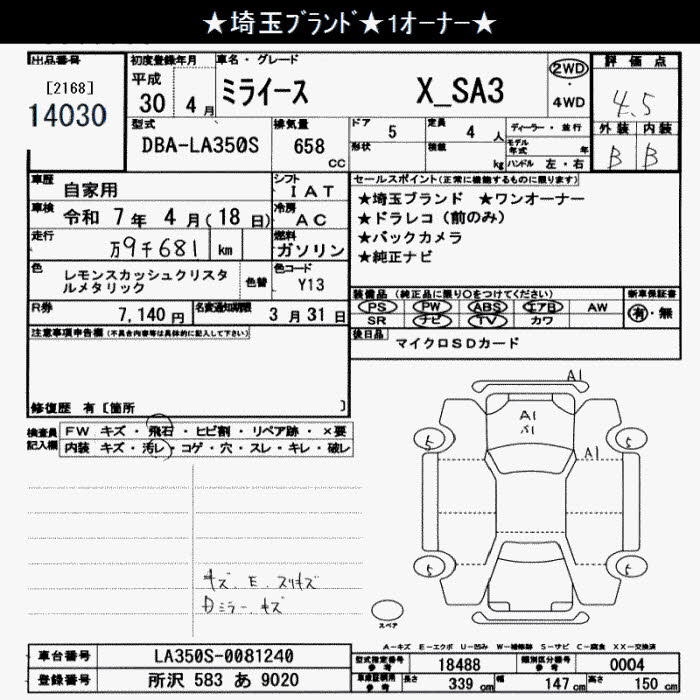 ★埼玉ﾌﾞﾗﾝﾄﾞ★1オーナー★
出品番号
[2168]
14030
初度登録年月
平成
30 4月
車名・グレード
ミライース X_SA3
2WD
・
4WD
評価点
4.5
外装 内装
B B
型式
DBA-LA350S
排気量
658
CC
ドア
5
定員
4 人
形状
積載
kg
ディーラー・並行
モデル年式 年
ハンドル 左・右
車歴
自家用
シフト
IAT
車検
令和 7年 4月(18日)
冷房
AC
走行
万9千681 km
燃料
ガソリン
色
レモンスカッシュクリスタ
ルメタリック
色替
色コード
Y13
R券
7,140円
名変通知期限
3月31日
セールスポイント(正常に機能するものに限ります)
★埼玉ブランド ★ワンオーナー
★ドラレコ(前のみ)
★バックカメラ
★純正ナビ
装備品 (純正品に限り○をつけてください)
PS PW ABS エアB AW
SR ナビ TV カワ
新車保証書
有・無
後日品
マイクロSDカード
注意事項申告欄(不具合内容等は具体的に記入して下さい)
修復歴 有〔箇所 〕
検査員
記入欄
FW キズ・飛石・ヒビ割・リペア跡・×要
内装 キズ・汚レ・コゲ・穴・スレ・キレ・破レ
A1
A1
バ1
A1
5
5
5
5
スペア
キズ、E、スリキズ
Dミラーキズ
A－キズ E－エクボ U－凹み W－補修跡 S－サビ C－腐食 XX－交換済
車台番号
LA350S-0081240
登録番号
所沢 583 あ 9020
型式指定番号
参考
18488
類別区分番号
参考
0004
車検証積用
参考
長さ
339 cm
幅
147 cm
高さ
150 cm